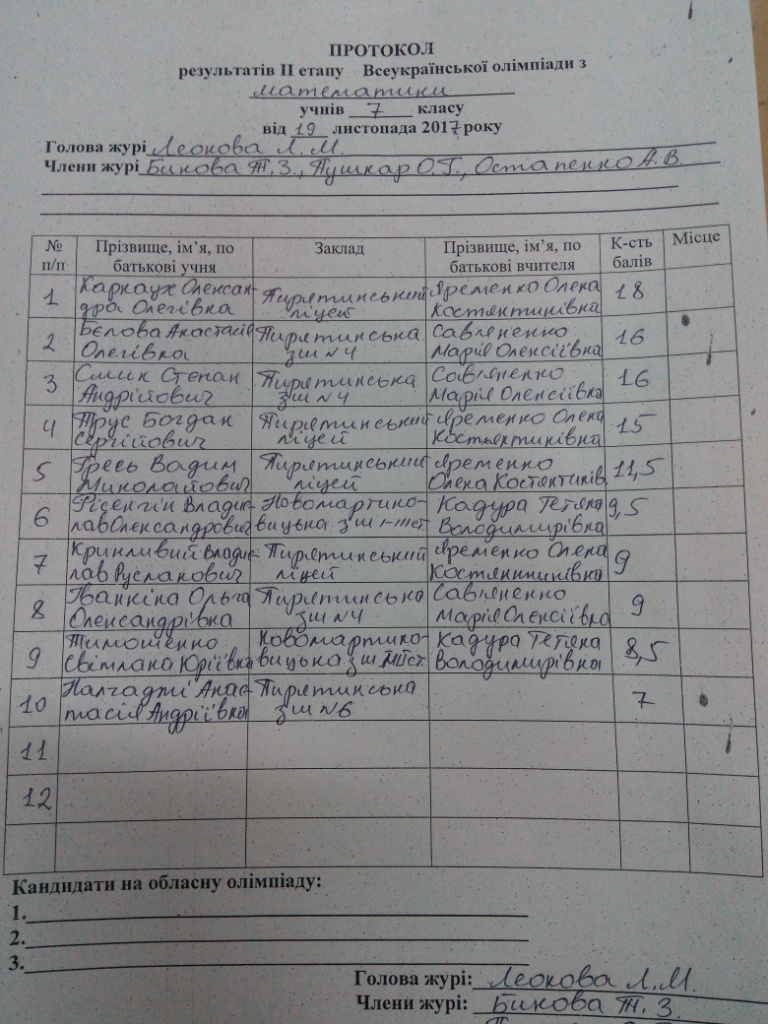 ПРОТОКОЛ
результатів ІІ етапу Всеукраїнської олімпіади з
математики
учнів 7 класу
від 19 листопада 2017 року
Голова журі Леонова Л.М.
Члени журі Бикова Т.З., Пушкар О.Г., Остапенко А.В.
№ п/п Прізвище, ім’я, по батькові учня Заклад Прізвище, ім’я, по батькові вчителя К-сть балів Місце
1 Каркаух Олександра Олегівна Пирятинський ліцей Яременко Олена Костянтинівна 18
2 Бєлова Анастасія Олегівна Пирятинська зш №4 Савяненко Марія Олексіївна 16
3 Смик Степан Андрійович Пирятинська зш №4 Савяненко Марія Олексіївна 16
4 Трус Богдан Сергійович Пирятинський ліцей Яременко Олена Костянтинівна 15
5 Гресь Вадим Миколайович Пирятинський ліцей Яременко Олена Костянтинів 11,5
6 Владислав Олександрович Новомартиновицька зш І-ІІІст Кадура Тетяна Володимирівна 9,5
7 Кринливий Владислав Русланович Пирятинський ліцей Яременко Олена Костянтинівна 9
8 Іванкіна Ольга Олександрівна Пирятинська зш №4 Савяненко Марія Олексіївна 9
9 Тимошенко Світлана Юріївна Новомартиновицька зш І-ІІІст Кадура Тетяна Володимирівна 8,5
10 Налгаджі Анастасія Андріївна Пирятинська зш №6 7
11
12
Кандидати на обласну олімпіаду:
1.
2.
3.
Голова журі: Леонова Л.М.
Члени журі: Бикова Т.З.